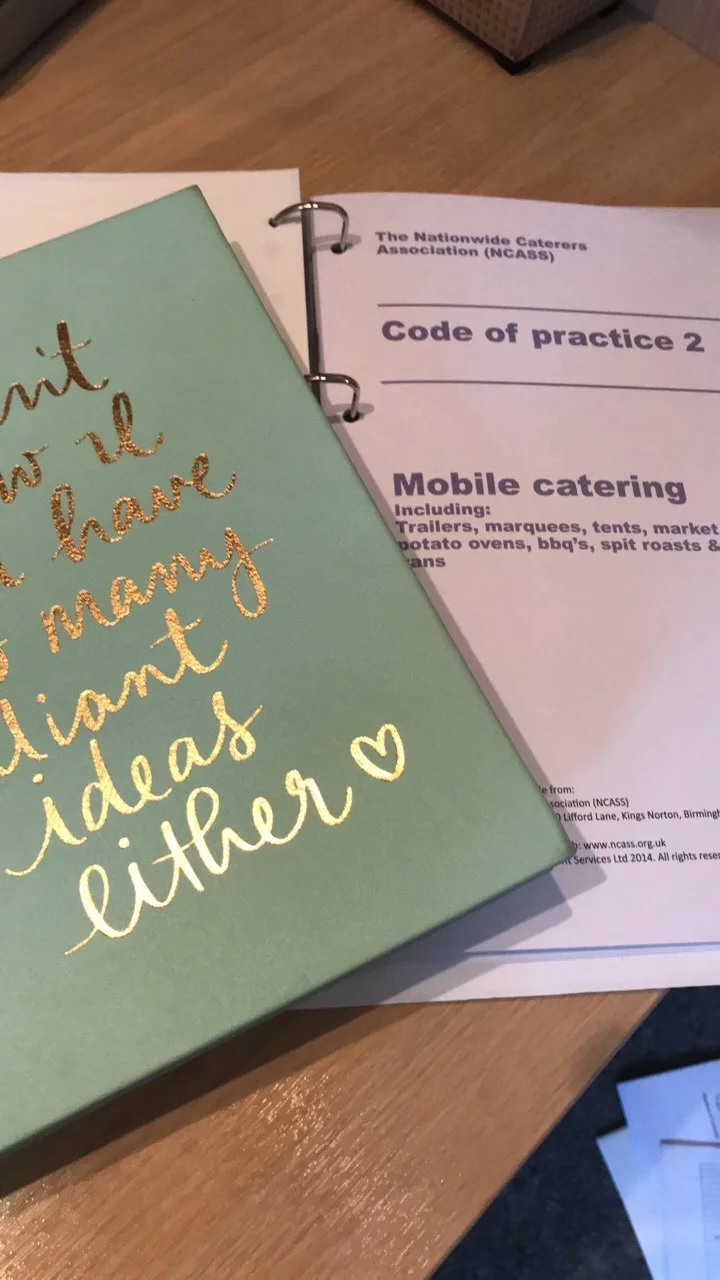 have
many
ideas
either
The Nationwide Caterers
Association (NCASS)
Code of practice 2
Mobile catering
Including:
Trailers, marquees, tents, market
potato ovens, bbq's, spit roasts &
from:
(NCASS)
Lifford Lane, Kings Norton,
www.ncass.org.uk
Services Ltd 2014. All rights